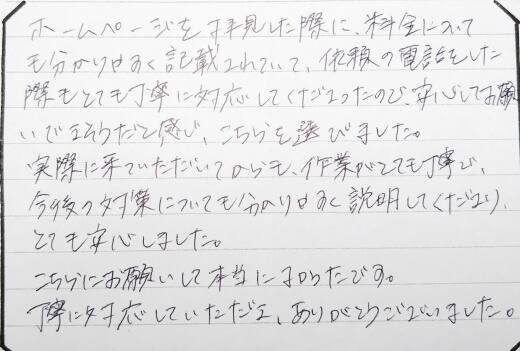 ホームページを拝見した際に、料金について
も分かりやすく記載されていて、依頼の電話をした
際もとても丁寧に対応してくださったので、安心してお願
いできそうだと感じ、こちらを選びました。
実際に来ていただいてからも、作業がとても丁寧で、
今後の対策についても分かりやすく説明してくださり、
とても安心しました。
こちらにお願いして本当によかったです。
丁寧に対応していただき、ありがとうございました。